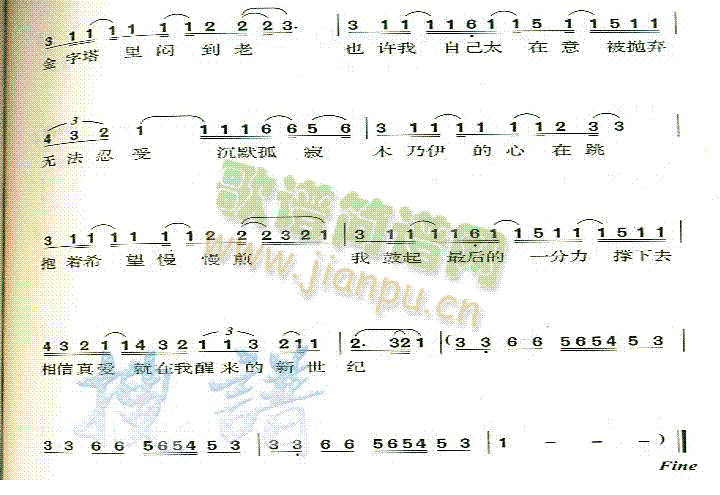 3 1 1 1 1 1 1 1 2 2 2 2 3· | 3 1 1 1 1 6 1 1 5 1 1 1 5 1 1 |
金字塔 里 闷 到 老 也 许我 自己太 在 意 被抛弃
4 3 2 1 1 1 1 6 6 5 6 | 3 1 1 1 1 1 1 2 3 3 |
无法 忍 受 沉默孤 寂 木 乃伊 的 心 在 跳
3 1 1 1 1 1 1 2 2 2 3 2 1 | 3 1 1 1 1 6 1 1 5 1 1 1 5 1 1 |
抱着希 望 慢 慢 煎 我 鼓起 最后的 一分力 撑下去
4 3 2 1 1 4 3 2 1 1 3 2 1 1 | 2· 3 2 1 | (3 3 6 6 5 6 5 4 5 3 |
相信真爱 就在我醒来的 新世 纪
3 3 6 6 5 6 5 4 5 3 | 3 3 6 6 5 6 5 4 5 3 | 1 – – – )
Fine
歌谱简谱网
www.jianpu.cn
搜谱